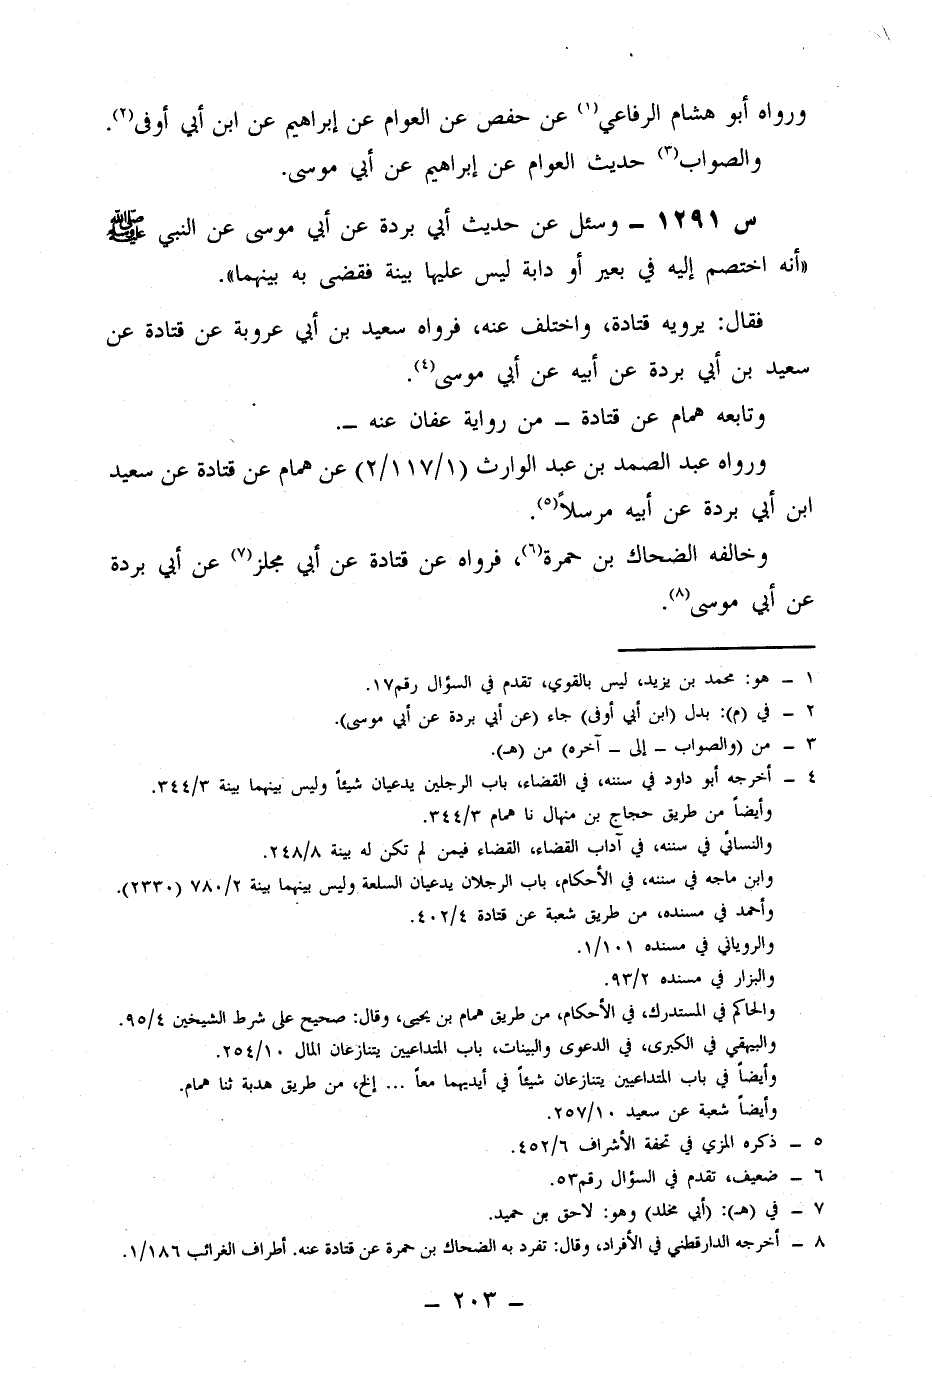 ورواه أبو هشام الرفاعي(١) عن حفص عن العوام عن إبراهيم عن ابن أبي أوفى(٢).
والصواب(٣) حديث العوام عن إبراهيم عن أبي موسى.
س ١٢٩١ ـ وسئل عن حديث أبي بردة عن أبي موسى عن النبي ﷺ
«أنه اختصم إليه في بعير أو دابة ليس عليها بينة فقضى به بينهما».
فقال: يرويه قتادة، واختلف عنه، فرواه سعيد بن أبي عروبة عن قتادة عن
سعيد بن أبي بردة عن أبيه عن أبي موسى(٤).
وتابعه همام عن قتادة ـ من رواية عفان عنه ـ.
ورواه عبد الصمد بن عبد الوارث (٢/١١٧/١) عن همام عن قتادة عن سعيد
ابن أبي بردة عن أبيه مرسلاً(٥).
وخالفه الضحاك بن حمرة(٦)، فرواه عن قتادة عن أبي مجلز(٧) عن أبي بردة
عن أبي موسى(٨).
١ ـ هو: محمد بن يزيد، ليس بالقوي، تقدم في السؤال رقم١٧.
٢ ـ في (م): بدل (ابن أبي أوفى) جاء (عن أبي بردة عن أبي موسى).
٣ ـ من (والصواب ـ إلى ـ آخره) من (هـ).
٤ ـ أخرجه أبو داود في سننه، في القضاء، باب الرجلين يدعيان شيئاً وليس بينهما بينة ٣٤٤/٣.
وأيضاً من طريق حجاج بن منهال نا همام ٣٤٤/٣.
والنسائي في سننه، في آداب القضاء، القضاء فيمن لم تكن له بينة ٢٤٨/٨.
وابن ماجه في سننه، في الأحكام، باب الرجلان يدعيان السلعة وليس بينهما بينة ٧٨٠/٢ (٢٣٣٠).
وأحمد في مسنده، من طريق شعبة عن قتادة ٤٠٢/٤.
والروياني في مسنده ١/١٠١.
والبزار في مسنده ٩٣/٢.
والحاكم في المستدرك، في الأحكام، من طريق همام بن يحيى، وقال: صحيح على شرط الشيخين ٩٥/٤.
والبيهقي في الكبرى، في الدعوى والبينات، باب المتداعيين يتنازعان المال ٢٥٤/١٠.
وأيضاً في باب المتداعيين يتنازعان شيئاً في أيديهما معاً ... إلخ، من طريق هدبة ثنا همام.
وأيضاً شعبة عن سعيد ٢٥٧/١٠.
٥ ـ ذكره المزي في تحفة الأشراف ٤٥٢/٦.
٦ ـ ضعيف، تقدم في السؤال رقم٥٣.
٧ ـ في (هـ): (أبي مخلد) وهو: لاحق بن حميد.
٨ ـ أخرجه الدارقطني في الأفراد، وقال: تفرد به الضحاك بن حمرة عن قتادة عنه. أطراف الغرائب ١/١٨٦.
ـ ٢٠٣ ـ